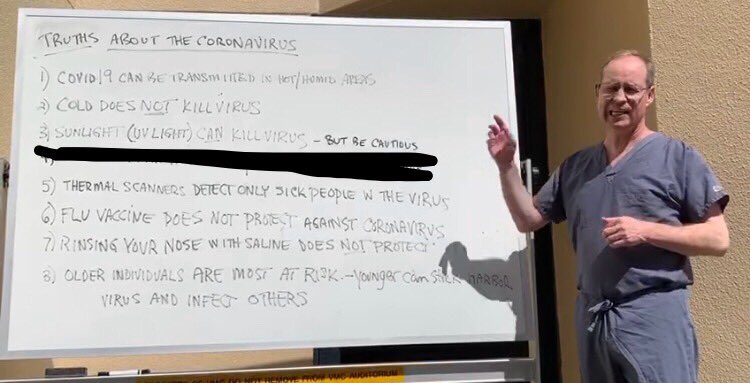 TRUTHS ABOUT THE CORONAVIRUS
1) COVID19 CAN BE TRANSMITTED IN HOT/HUMID AREAS
2) COLD DOES NOT KILL VIRUS
3) SUNLIGHT (UV LIGHT) CAN KILL VIRUS - BUT BE CAUTIOUS
5) THERMAL SCANNERS DETECT ONLY SICK PEOPLE W THE VIRUS
6) FLU VACCINE DOES NOT PROTECT AGAINST CORONAVIRUS
7) RINSING YOUR NOSE WITH SALINE DOES NOT PROTECT
8) OLDER INDIVIDUALS ARE MOST AT RISK - younger can still HARBOR
VIRUS AND INFECT OTHERS
VMC DO NOT REMOVE FROM VMC AUDITORIUM